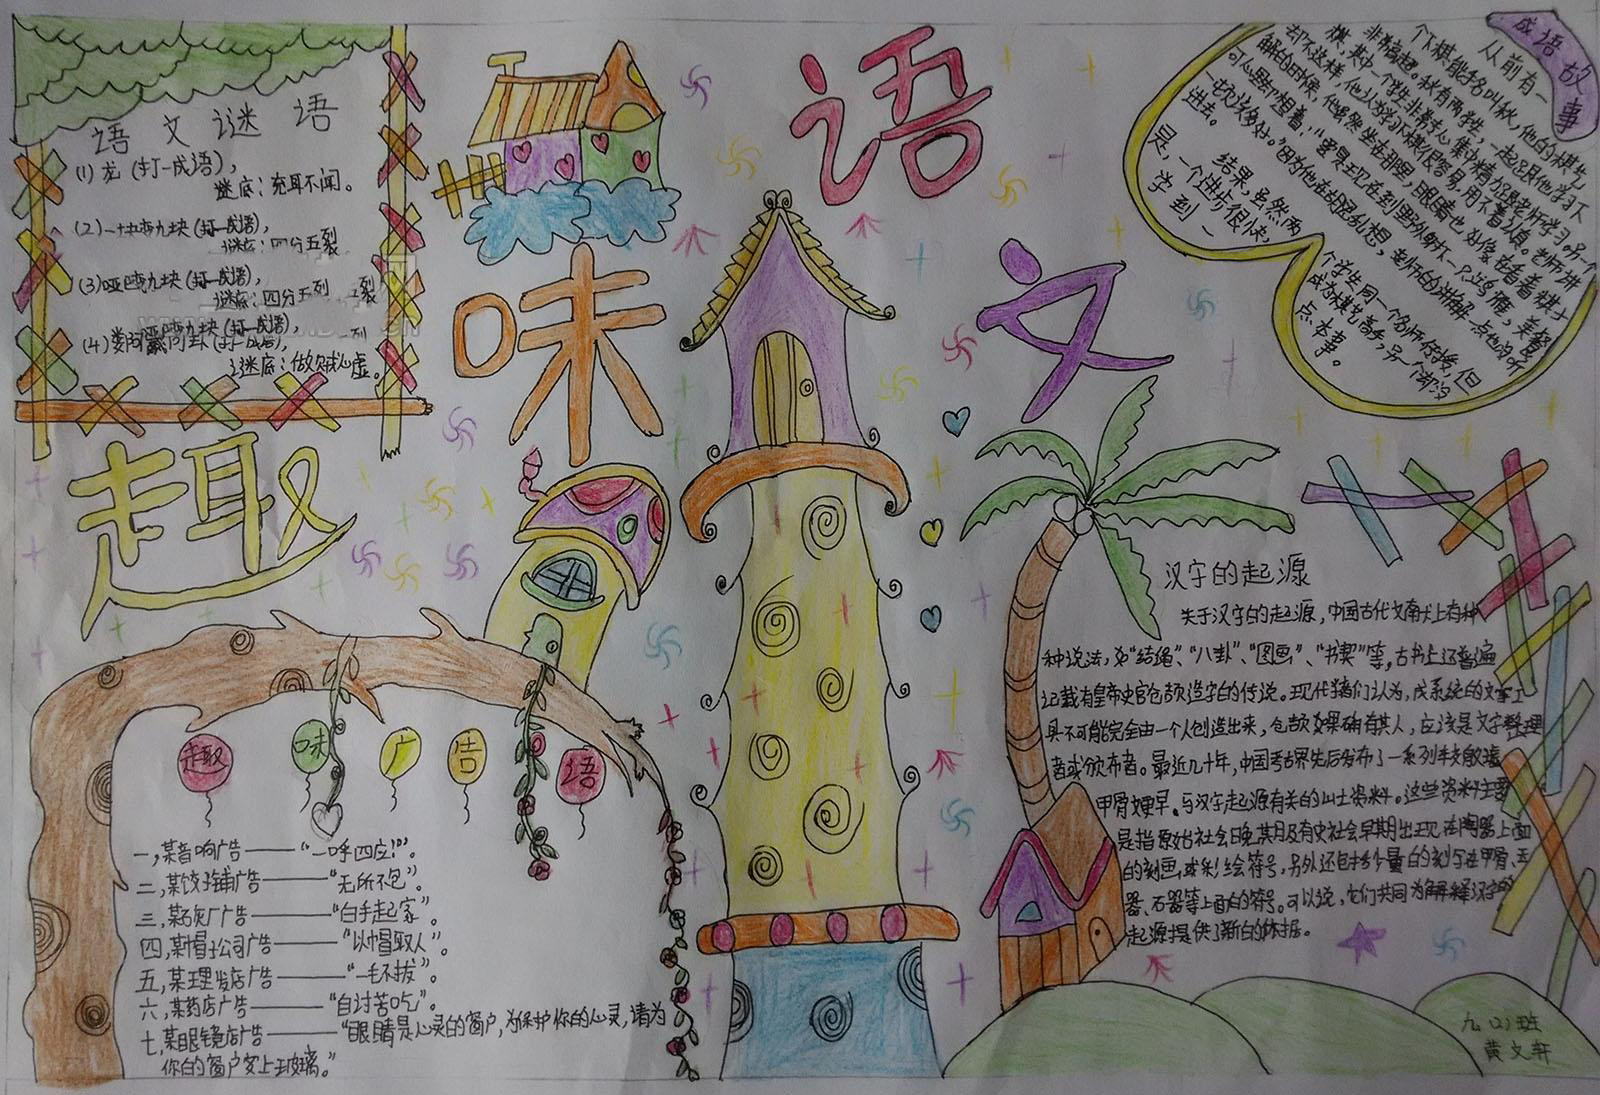 趣味语文
语文谜语
(1)龙(打一成语),
谜底:充耳不闻。
(2)一块变九块(打一成语),
谜底:四分五裂
(3)哑巴
谜底:四分五裂
(4)
谜底:做贼心虚。
成语故事
从前有一
个下棋能手名叫秋,他的棋艺
非常高超。秋有两个学生,一起跟他学习下
棋,其中一个学生非常专心,集中精力跟老师学习。另一个
却不这样,他认为学习下棋很容易,用不着认真。老师讲
解的时候,他虽然坐在那里,眼睛也好像在看着棋子,
可心里却想着:“要是现在到野外射下一只鸿雁,美餐
一顿该多好。”因为他在胡思乱想,老师的讲解一点也没听
进去。
结果,虽然两
个学生同一个名师传授,但
是,一个进步很快,
成为棋艺高手,另一个却没
学到一
点本事。
趣味广告语
一,某音响广告——“一呼四应!”。
二,某饺子铺广告——“无所不包”。
三,某石灰厂广告——“白手起家”。
四,某帽子公司广告——“以帽取人”。
五,某理发店广告——“一毛不拔”。
六,某药店广告——“自讨苦吃”。
七,某眼镜店广告——“眼睛是心灵的窗户,为保护你的心灵,请为
你的窗户安上玻璃。”
汉字的起源
关于汉字的起源,中国古代文献上有种
种说法,如“结绳”、“八卦”、“图画”、“书契”等,古书上还普遍
记载有皇帝史官仓颉造字的传说。现代学者们认为,成系统的文字工
具不可能完全由一个人创造出来,仓颉如果确有其人,应该是文字整理
者或颁布者。最近几十年,中国考古界先后发布了一系列较殷墟
甲骨文更早、与汉字起源有关的出土资料。这些资料主要
是指原始社会晚期及有史社会早期出现在陶器上面
的刻画或彩绘符号,另外还包括少量的刻写在甲骨、玉
器、石器等上面的符号。可以说,它们共同为解释汉字的
起源提供了新的依据。
九(2)班
黄文轩